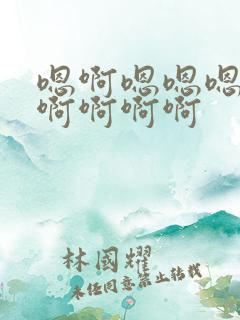 嗯啊嗯嗯嗯
啊啊啊啊
林國耀
未经同意禁止转载